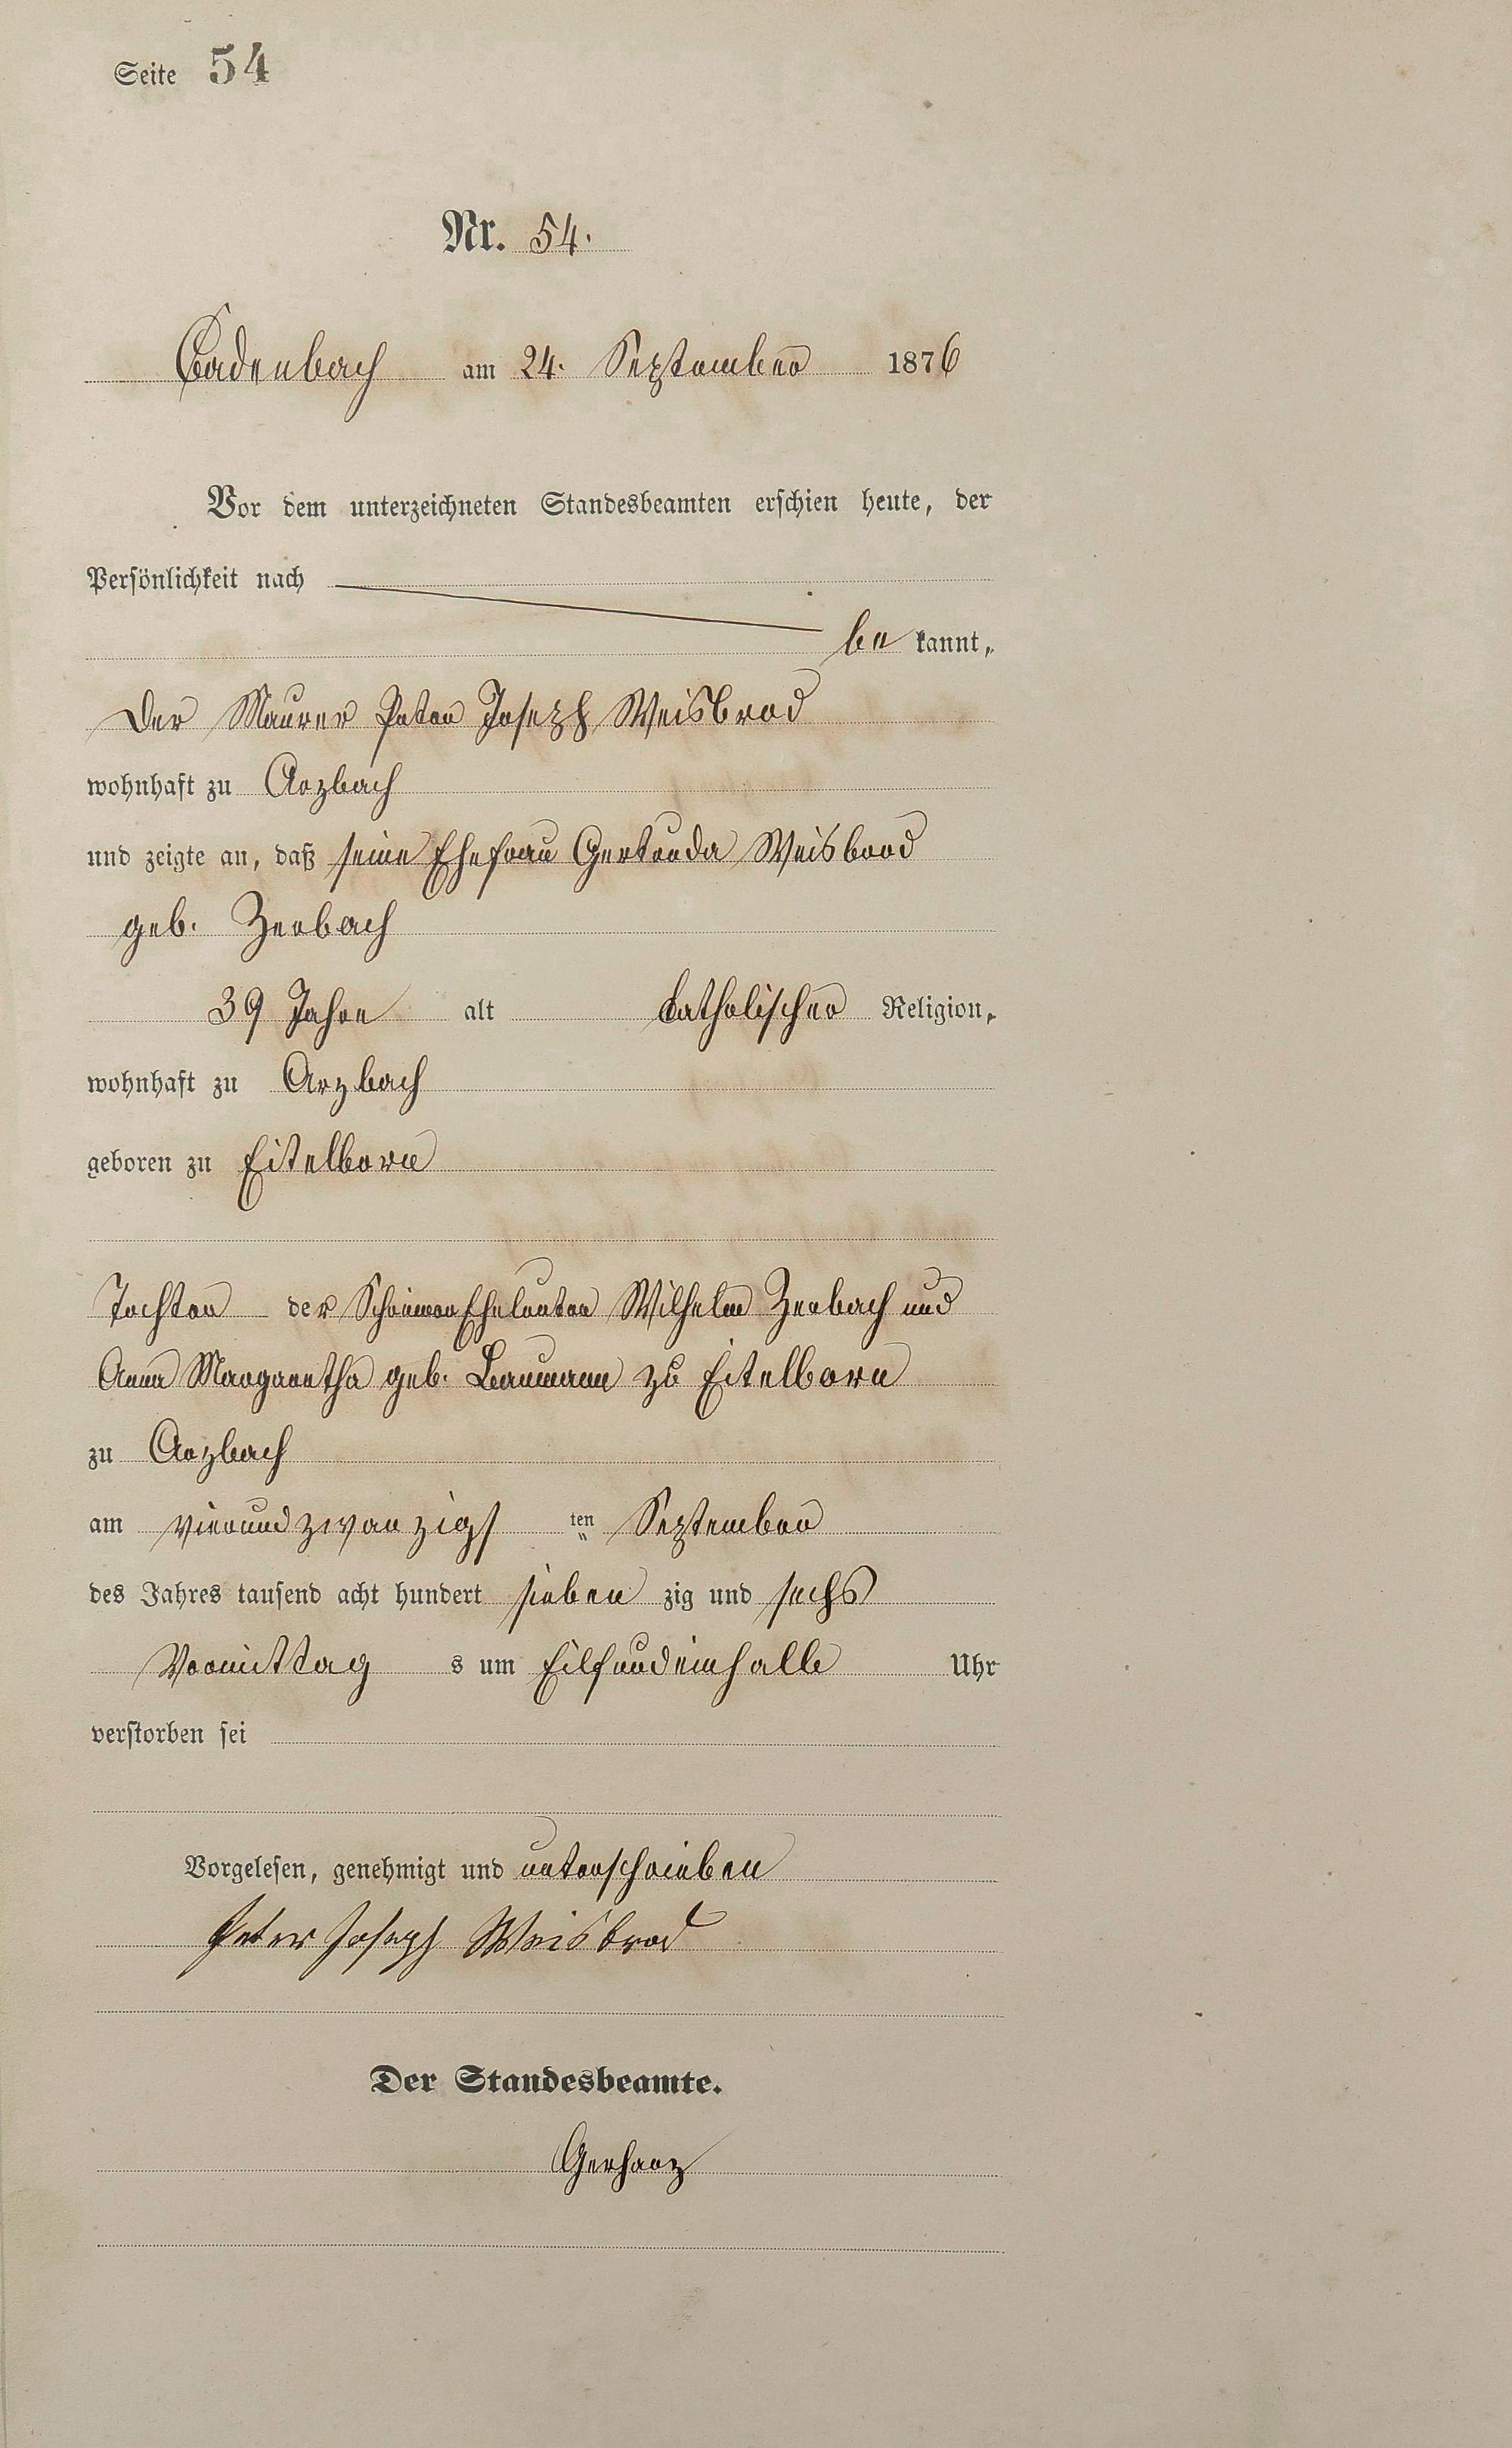 Seite 54
Nr. 54.
Cadenbach am 24. September 1876
Vor dem unterzeichneten Standesbeamten erschien heute, der
Persönlichkeit nach
be kannt,
Der Maurer Peter Joseph Weisbrod
wohnhaft zu Arzbach
und zeigte an, daß seine Ehefrau Gertruda Weisbrod
geb. Zerbach
39 Jahre alt katholischer Religion,
wohnhaft zu Arzbach
geboren zu Eitelborn
Tochter der Schreiner Eheleuten Wilhelm Zerbach und
Anna Margaretha geb. Baumann zu Eitelborn
zu Arzbach
am vierundzwanzigs ten September
des Jahres tausend acht hundert sieben zig und sechs
Vormittag s um Eilfundeinhalb Uhr
verstorben sei
Vorgelesen, genehmigt und unterschrieben
Peter Joseph Weisbrod
Der Standesbeamte.
Gerharz